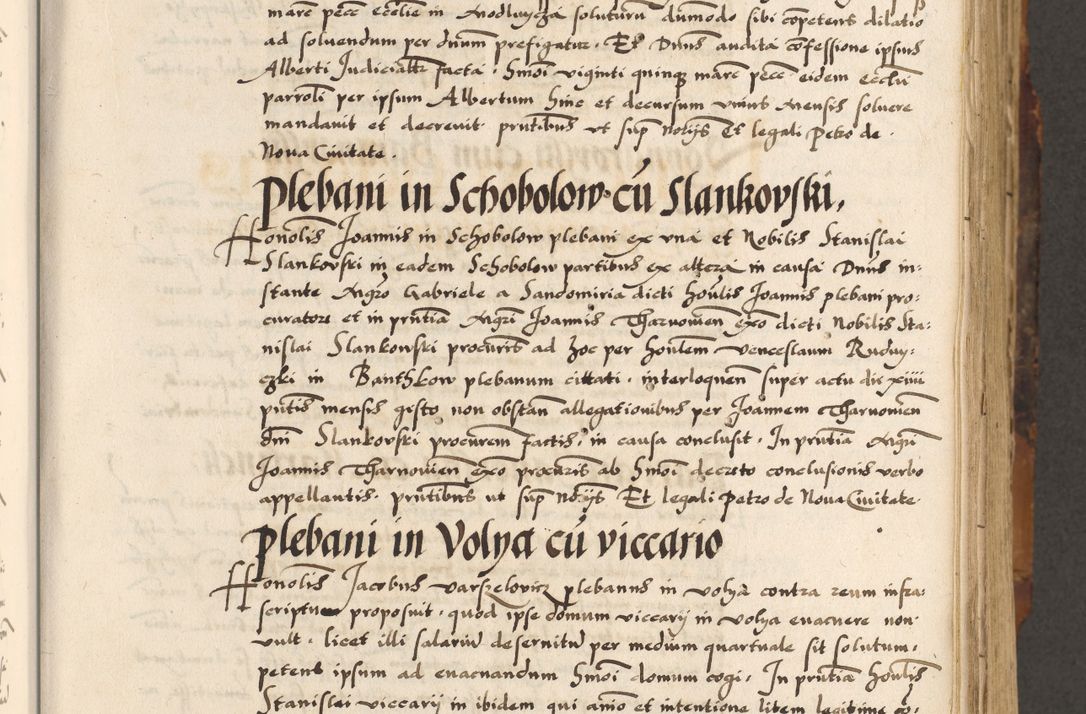 marc pecc ecclie in Modlnycza soluturum dummodo sibi competens dilatio
ad soluendum per dnum prefigatur. Et Dnus audita confessione ipsius
Alberti Judicialitr facta. Hmoi viginti quinq marc pecc eidem eccliae
parroli per ipsum Albertum hinc et decursum vnius mensis soluere
mandauit et decreuit prntibus vt sup notijs Et legali Petro de
Noua Ciuitate.
Plebani in Schobolow cu Slankovski.
Honolis Joannis in Schobolow plebani ex vna et Nobilis Stanislai
Slankovski in eadem Schobolow partibus ex altera in causa Dnus in-
stante Mgro Gabriele a Sandomiria dicti honlis Joannis plebani pro-
curatore et in prntia Mgri Joannis Tharnowien exo dicti Nobilis Sta-
nislai Slankovski procuris ad hoc per honlem venceslaum Ruduy-
czki in Banthkow plebanum cittati, interloquen super actu die xiiii
pntis mensis gesto non obstan allegationibus per Joannem Tharnowien
dni Slankovski procurem factis, in causa conclusit. In prntia Mgri
Joannis Tharnowien exo procuris ab hmoi decreto conclusionis verbo
appellantis. prntibus ut sup notijs Et legali Petro de Noua Ciuitate
Plebani in Volya cu viccario
Honolis Jacobus varszelowicz plebanus in volya contra reum infra-
scriptum proposuit. quod ipse domum viccarij in Volya euacuere non
vult. licet illi salariu deseruitu per medium quartuale sit solutum.
petens ipsum ad euacuandum hmoi domum cogi. In prntia honlis
Stanislai viccarij in ibidem qui animo et intentione litem legitime co-